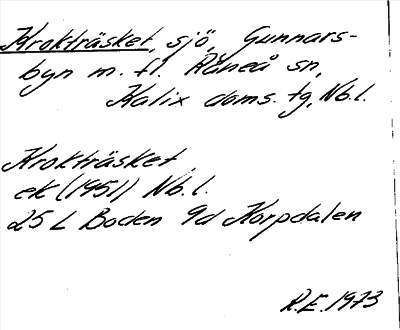 Krokträsket, sjö, Gunnars-
byn m. fl. Råneå sn,
Kalix doms. tg, Nb.l.
Krokträsket
ek (1951) Nb.l.
25 L Boden 9d Korpdalen
R.E. 1973